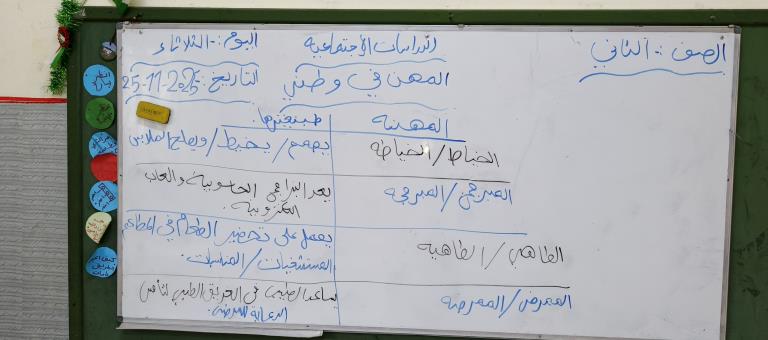 الصف :- الثاني
الدراسات الإجتماعية
اليوم :- الثلاثاء
المهن في وطني
التاريخ: 25-11-2025
المهنة
طبيعتها.
الخياط/الخياطة
يصمم/يخيط/ويصلح الملابس
المبرمج/المبرمجة
يعد البرامج الحاسوبية والعاب
الكترونية.
الطاهي/الطاهية
يعمل على تحضير الطعام في المطاعم
المستشفيات/المناسبات.
الممرض/الممرضة
يساعد الطبيب في الفريق الطبي لتأمين
الرعاية للمرضى.